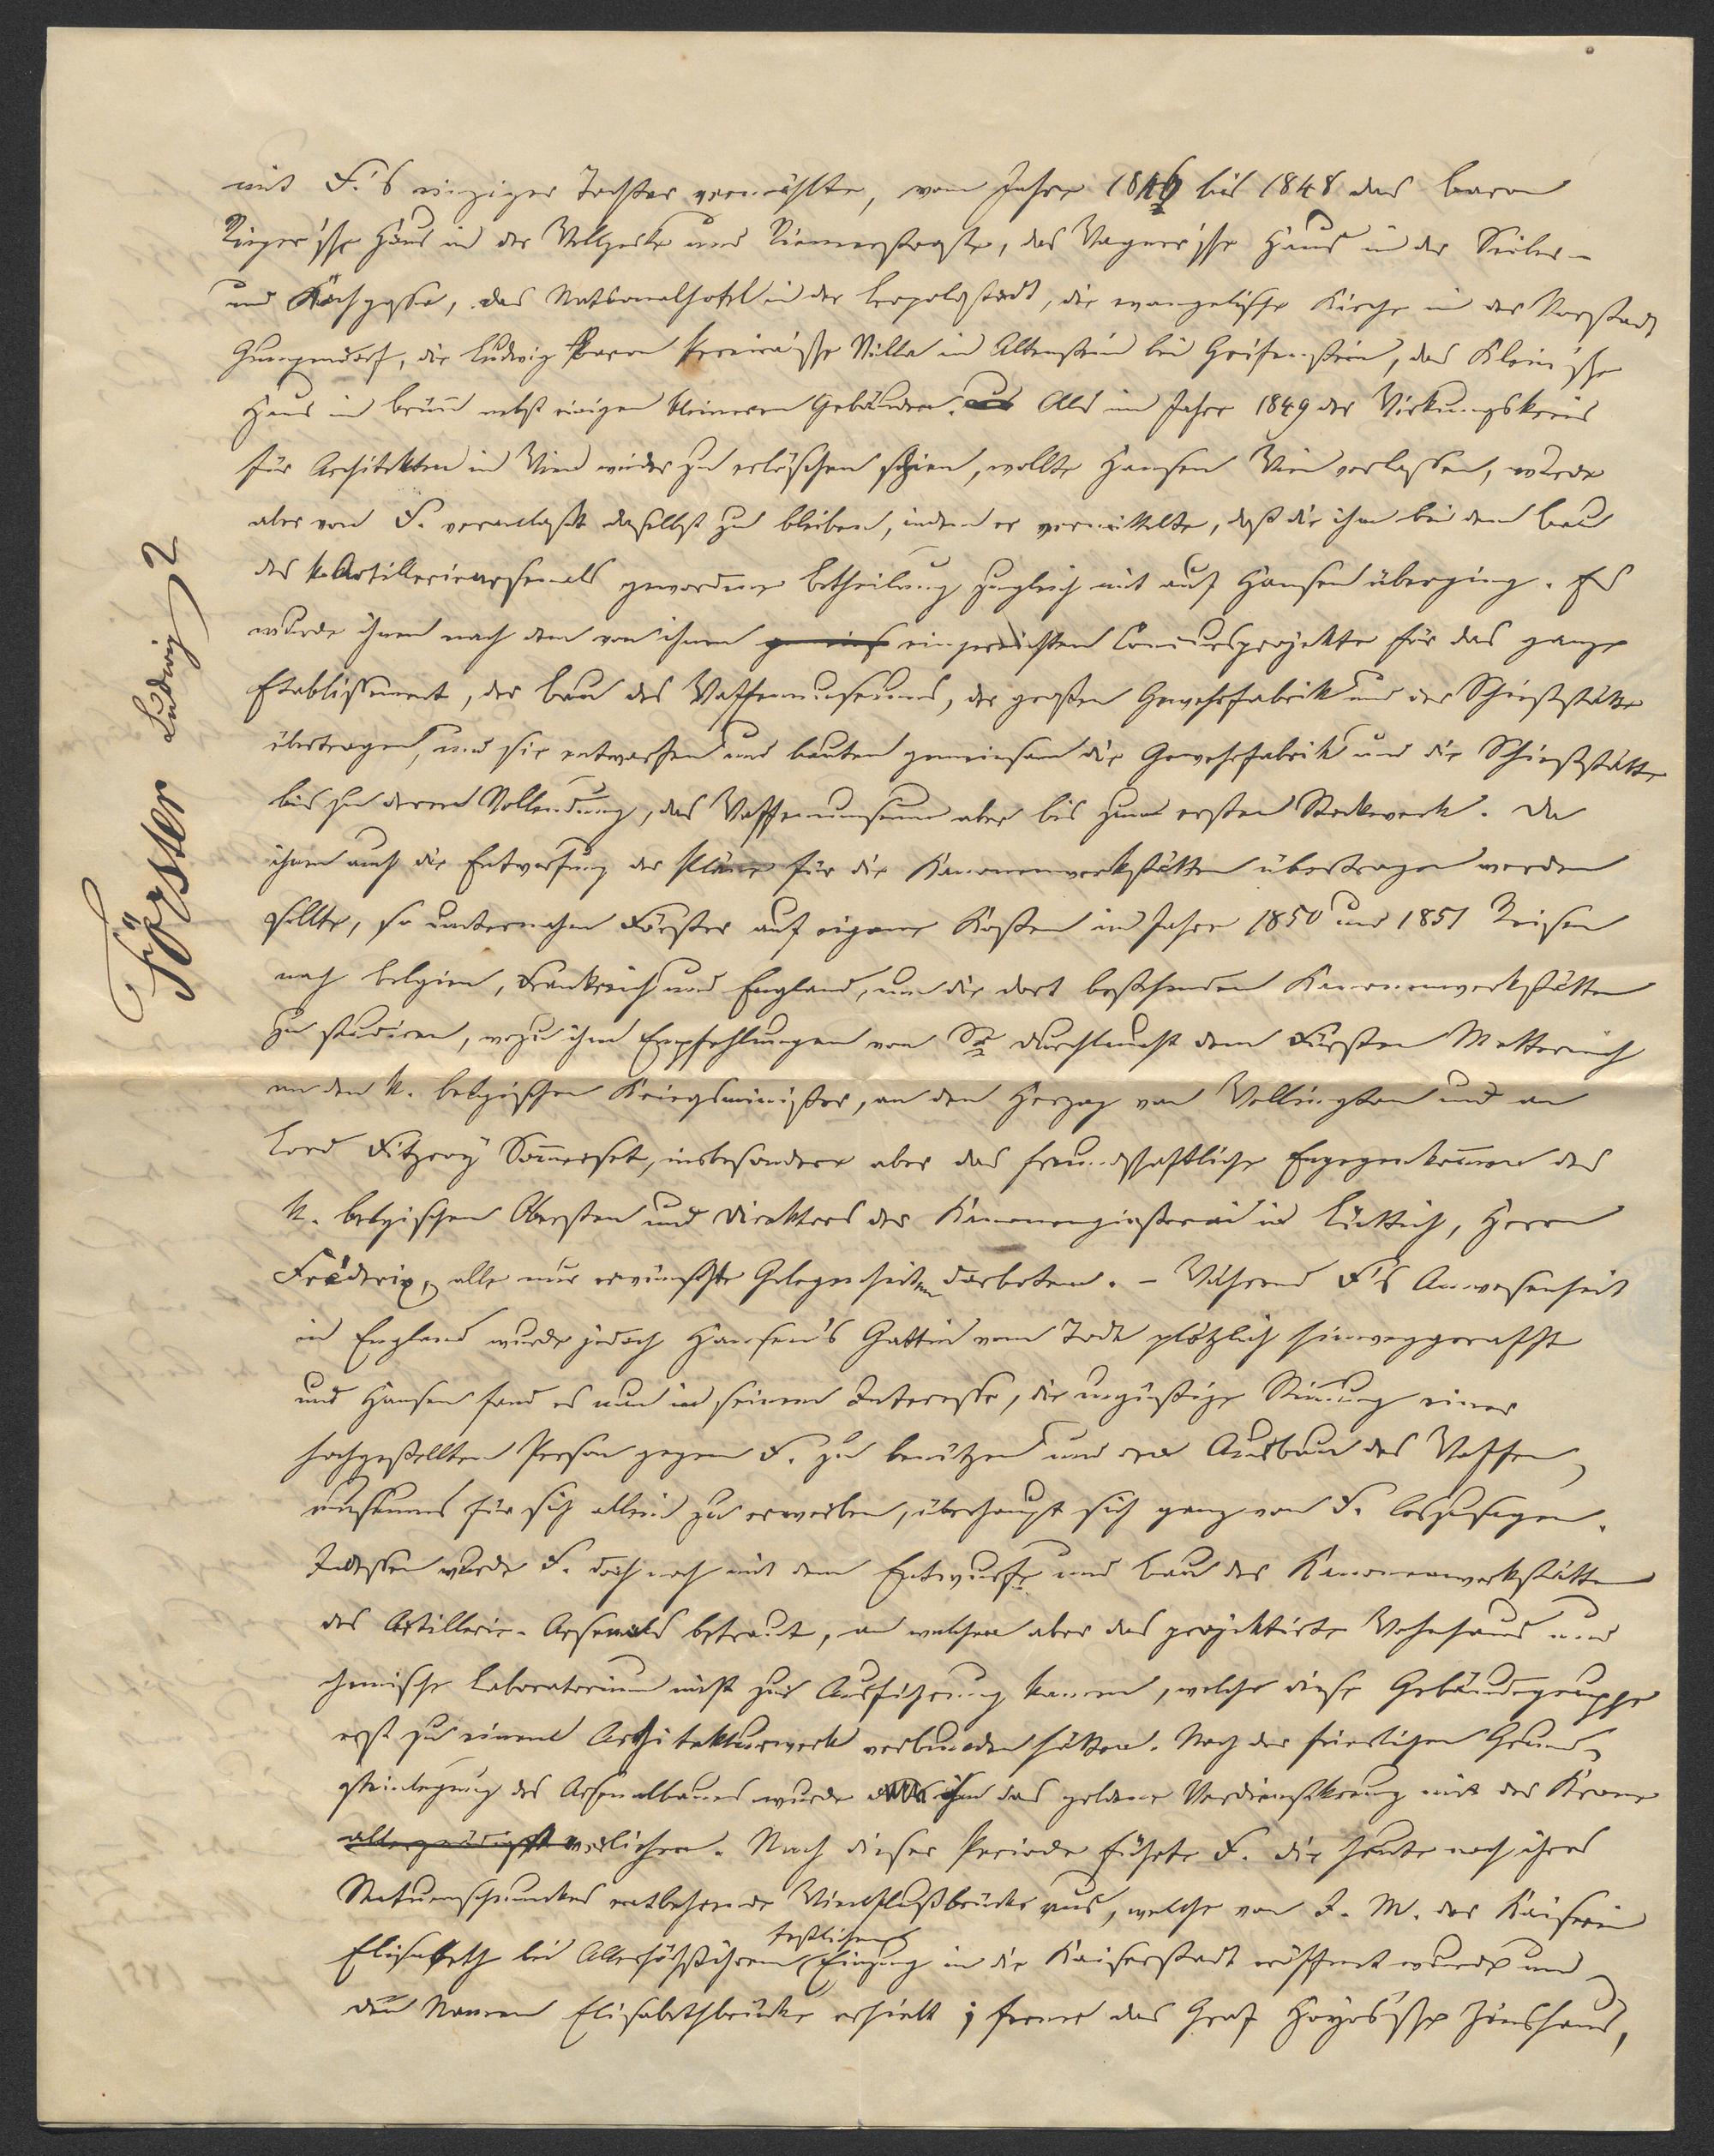 mit F.'s einziger Tochter vermählte, vom Jahre 1846 bis 1848 das Baron
Rieger'sche Haus in der Wollzeile und Riemerstraße, das Wagner'sche Haus in der Seiler-
und Rauhgasse, das Nationalhotel in der Leopoldstadt, die evangelische Kirche in der Vorstadt
Gumpendorf, die Ludwig Baron Pereira'sche Villa in Altenstein bei Greifenstein, das Klein'sche
Haus in Brünn nebst einigen kleineren Gebäuden. Als im Jahre 1849 der Wirkungskreis
für Architekten in Wien wieder zu erlöschen schien, wollte Hansen Wien verlassen, wurde
aber von F. veranlaßt daselbst zu bleiben, indem er vermittelte, daß die ihm bei dem Bau
des k. Artilleriearsenals gewordene Betheilung zugleich mit auf Hansen überging. Es
wurde ihnen nach dem von ihnen eingereichten Concursprojekte für das ganze
Etablissement, der Bau des Waffenmuseums, der großen Gewehrfabrik und der Schießstätte
übertragen, und sie entwarfen und bauten gemeinsam die Gewehrfabrik und die Schießstätte
bis zu deren Vollendung, das Waffenmuseum aber bis zum ersten Stockwerk. Da
ihnen auch die Entwerfung der Pläne für die Kanonenwerkstätten übertragen werden
sollte, so unternahm Förster auf eigene Kosten im Jahre 1850 und 1851 Reisen
nach Belgien, Frankreich und England, um die dort bestehenden Kanonenwerkstätten
zu studiren, wozu ihm Empfehlungen von Sr Durchlaucht dem Fürsten Metternich
an den k. belgischen Kriegsminister, an den Herzog von Wellington und an
Lord Fitzroy Somerset, insbesondere aber das freundschaftliche Engegenkommen des
k. belgischen Obersten und Direktors der Kanonengießerei in Lüttich, Herrn
Fréderix, alle nur erwünschte Gelegenheiten darboten. – Während F.'s Anwesenheit
in England wurde jedoch Hansen's Gattin vom Tode plötzlich hinweggerafft
und Hansen fand es nun in seinem Interesse, die ungünstige Stimmung einer
hochgestellten Person gegen F. zu benützen und den Ausbau des Waffen-
museums für sich allein zu erwerben, überhaupt sich ganz von F. loszusagen.
Indessen wurde F. doch noch mit dem Entwurfe und Bau der Kanonenwerkstätten
des Artillerie-Arsenals betraut, an welchen aber das projektirte Wohnhaus und
chemische Laboratorium nicht zur Ausführung kamen, welche diese Gebäudegruppe
erst zu einem Architekturwerk verbunden hätten. Nach der feierlichen Grund-
steinlegung des Arsenalbaues wurde ihm das goldene Verdienstkreuz mit der Krone
allergnädigst verliehen. Nach dieser Periode führte F. die heute noch ihres
Statuenschmuckes entbehrende Wienflußbrücke aus, welche von I. M. der Kaiserin
Elisabeth bei Allerhöchstihrem festlichen Einzug in die Kaiserstadt eröffnet wurde und
den Namen Elisabethbrücke erhielt; ferner das Graf Hoyos'sche Zinshaus,
Förster Ludwig 2